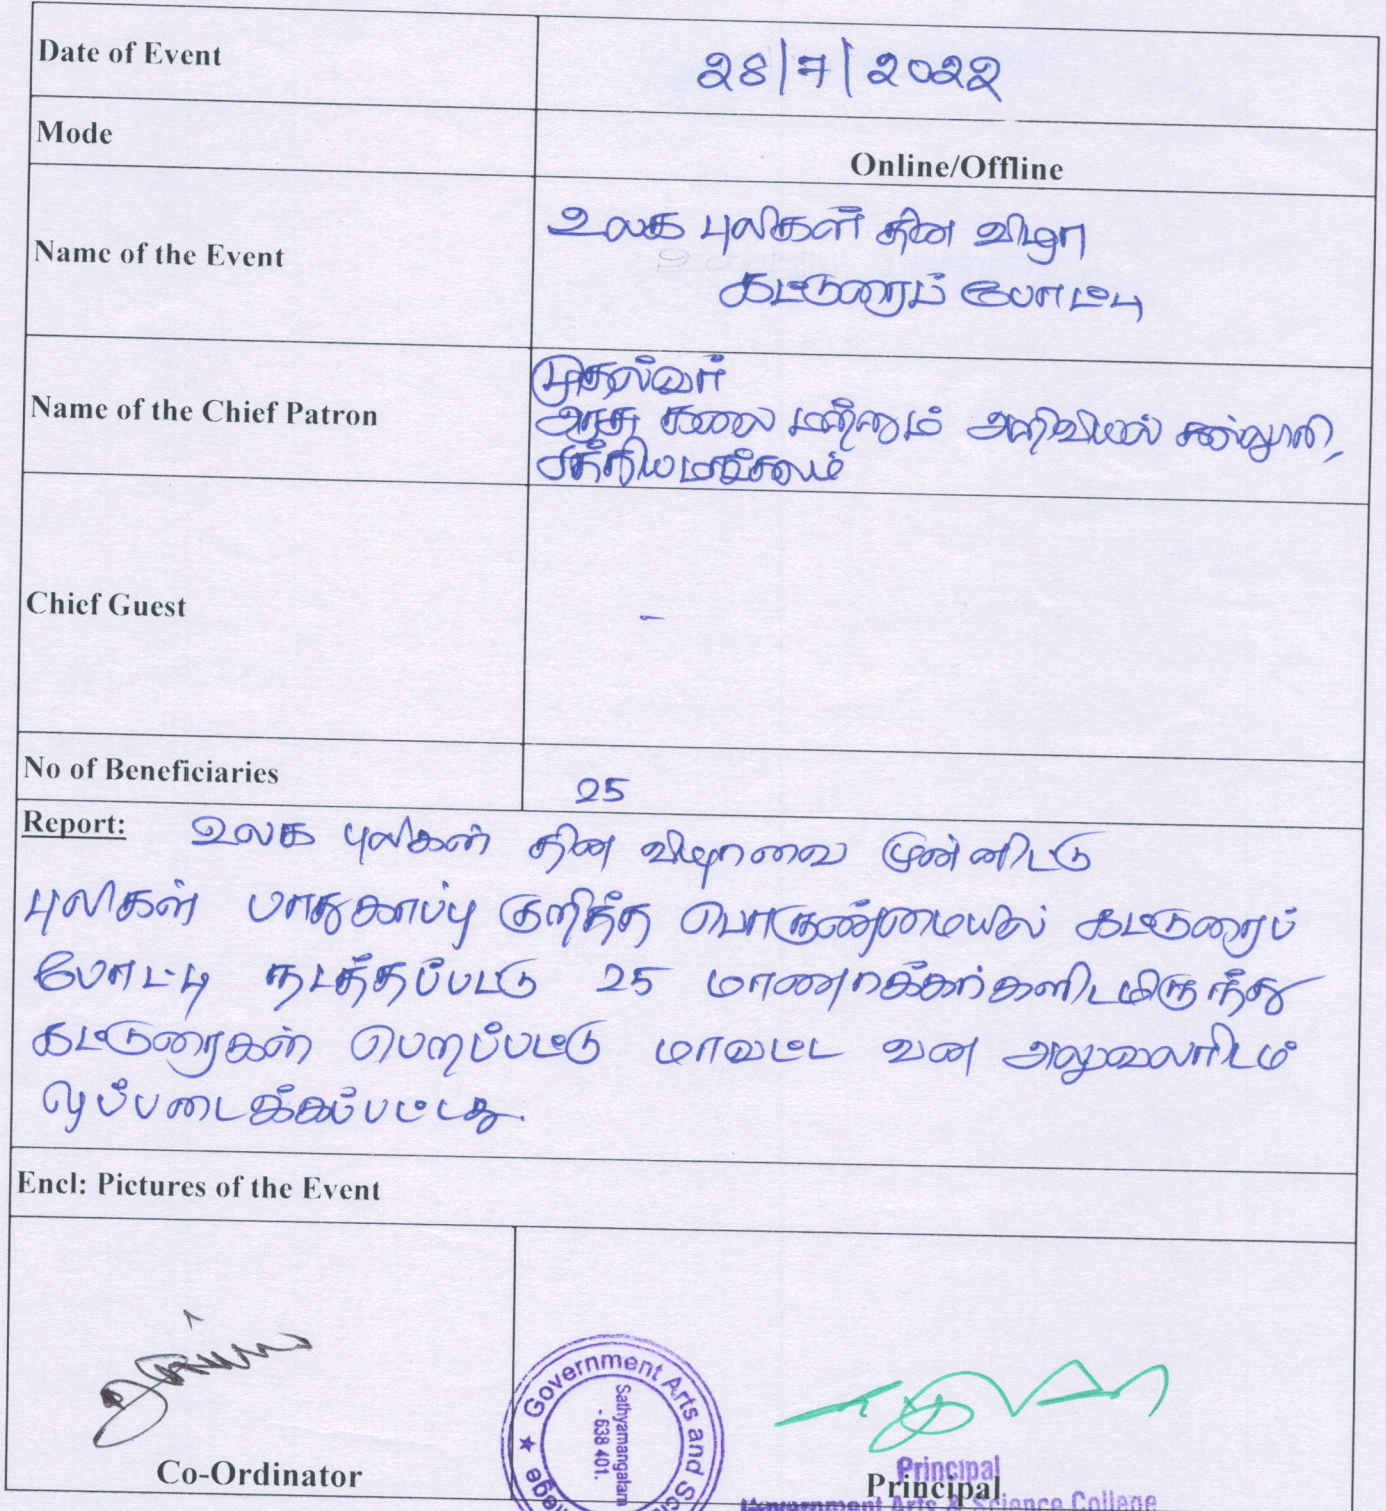 Date of Event
28/7/2022
Mode
Online/Offline
Name of the Event
உலக புலிகள் தின விழா
கட்டுரைப் போட்டி
Name of the Chief Patron
முதல்வர்
அரசு கலை மற்றும் அறிவியல் கல்லூரி,
சத்தியமங்கலம்
Chief Guest
-
No of Beneficiaries
25
Report: உலக புலிகள் தின விழாவை முன்னிட்டு
புலிகள் பாதுகாப்பு குறித்த பொருண்மையில் கட்டுரைப்
போட்டி நடத்தப்பட்டு 25 மாணாக்கர்களிடமிருந்து
கட்டுரைகள் பெறப்பட்டு மாவட்ட வன அலுவலரிடம்
ஒப்படைக்கப்பட்டது.
Encl: Pictures of the Event
Government Arts and
Sathyamangalam
- 638 401.
Co-Ordinator
Principal
Principal
Government Arts & Science College